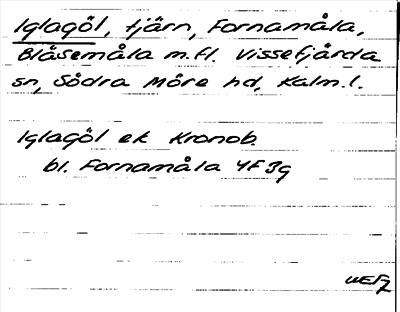 Iglagöl, tjärn, Fornamåla,
Blåsemåla m.fl. Vissefjärda
sn, Södra Möre hd, Kalm.l.
Iglagöl ek Kronob.
bl. Fornamåla 4F 3g